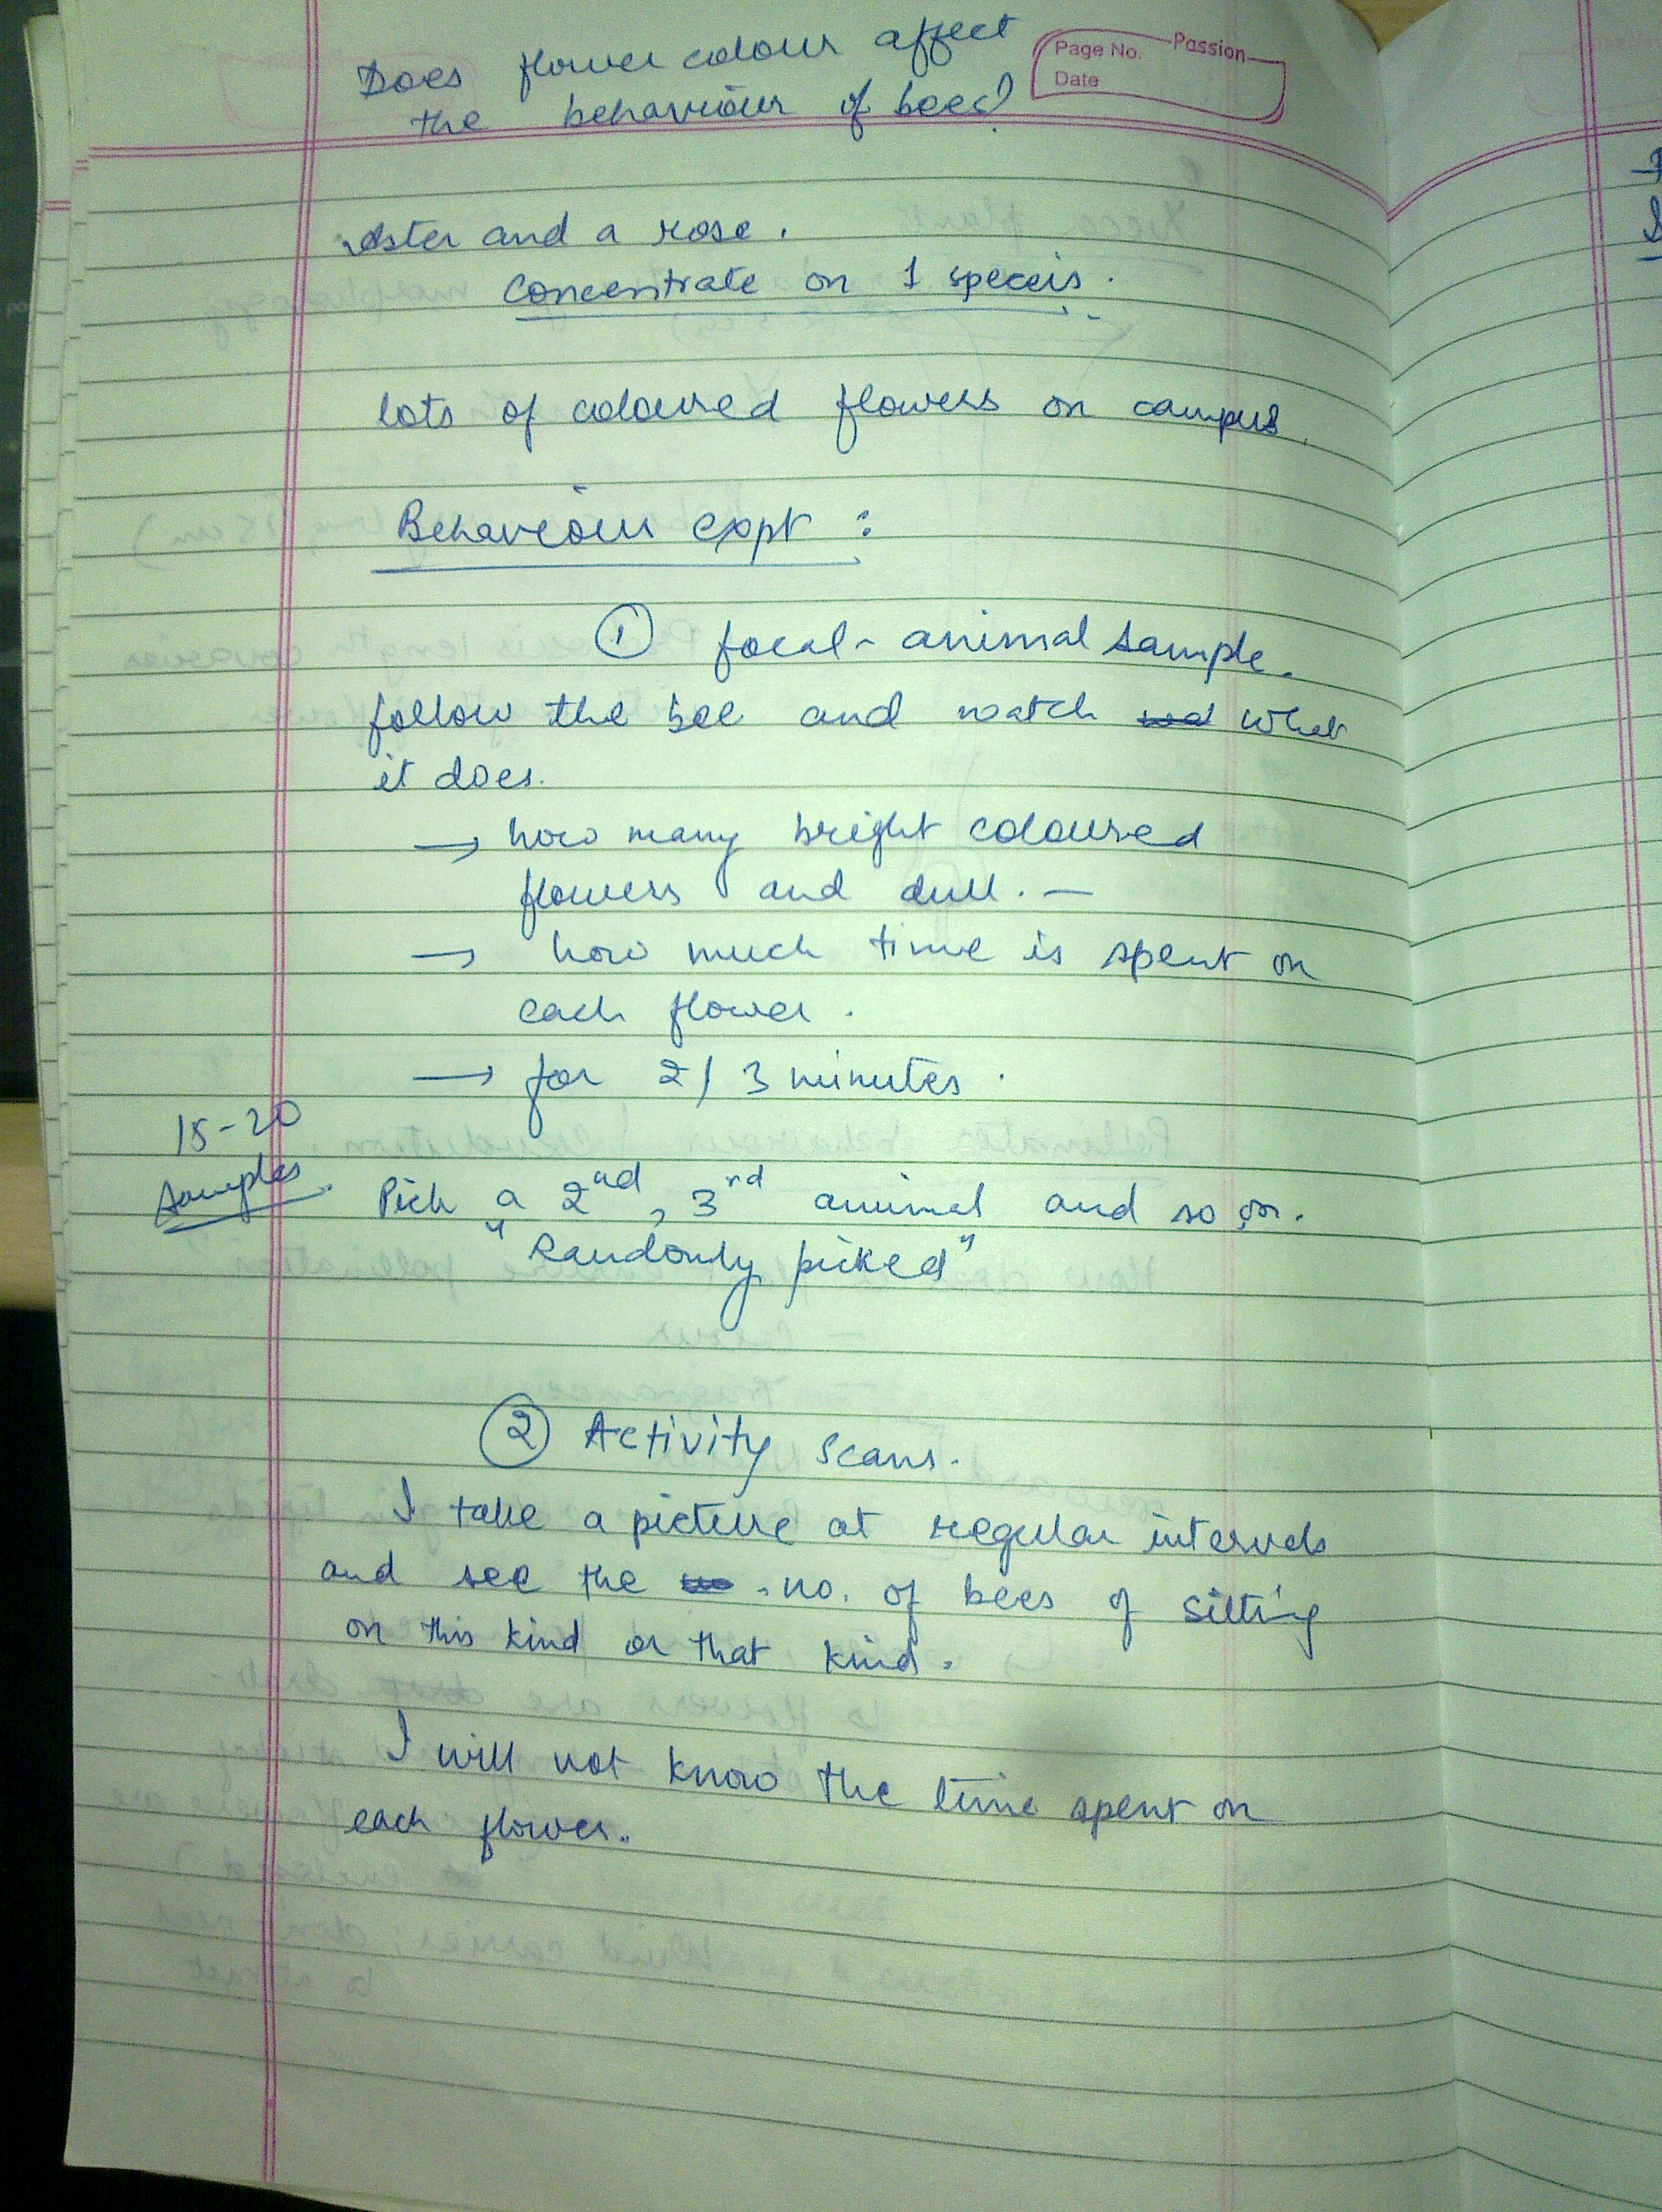 Does flower colour affect
the behaviour of bees?
Page No.
Passion
Date
Aster and a rose.
Concentrate on 1 speceis.
lots of coloured flowers on campus.
Behaviour expt :
① focal-animal sample.
follow the bee and watch what
it does.
→ how many bright coloured
flowers and dull. —
→ how much time is spent on
each flower.
→ for 2/3 minutes.
15-20
samples.
Pick a 2nd, 3rd animal and so on.
"Randomly picked"
② Activity scans.
I take a picture at regular intervals
and see the no. of bees of sitting
on this kind or that kind.
I will not know the time spent on
each flower.